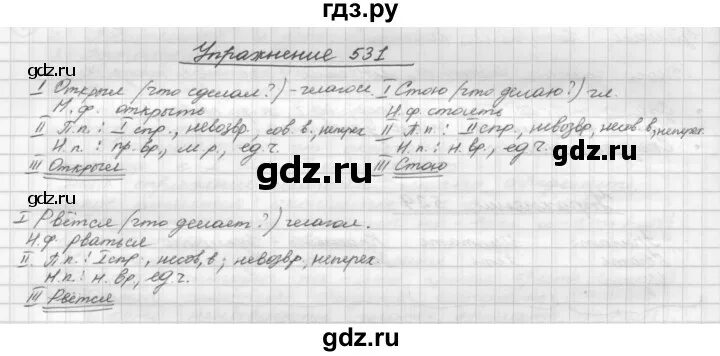 гдз.ру
Упражнение 531
gdz.ru
gdz.ru
I Открыл (что сделал?) - глагол.
Н.ф. открыть
II П.п.: I спр., невозвр., сов. в., неперех.
Н.п.: пр. вр., м.р., ед.ч.
III Открыл
I Стою (что делаю?) гл.
Н.ф. стоять
II П.п.: II спр., невозвр., несов. в., неперех.
Н.п.: н. вр., ед.ч.
III Стою
gdz.ru
gdz.ru
I Рвётся (что делает?) глагол.
Н.ф. рваться
II. П.п.: I спр., несов. в., невозвр., неперех.
Н.п.: н. вр., ед.ч.
III Рвётся
gdz.ru
gdz.ru